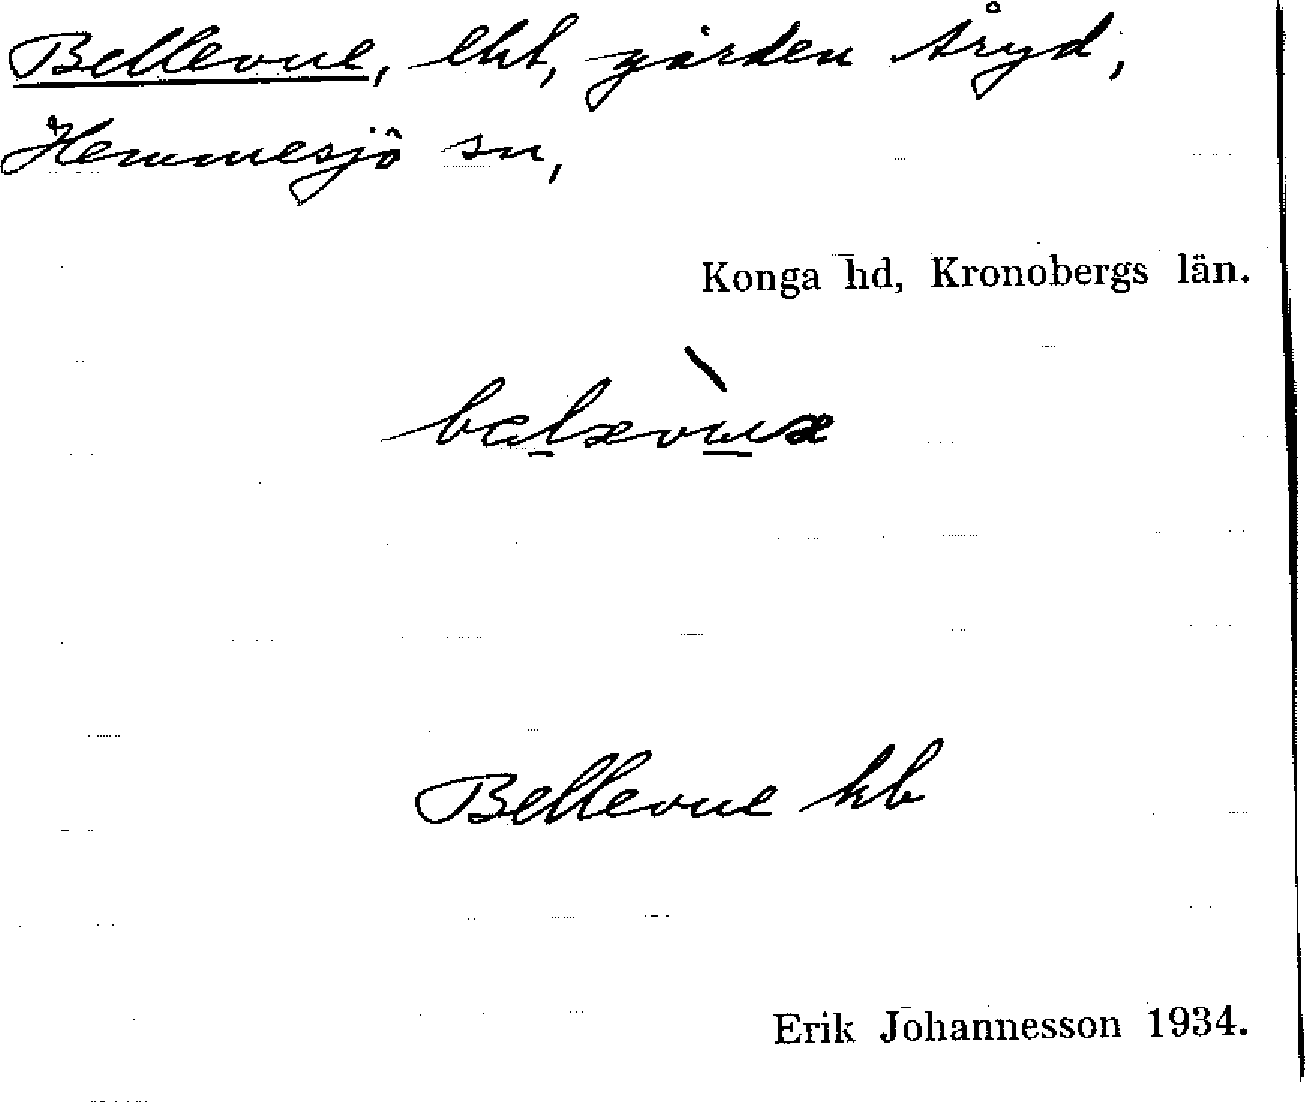 Bellevue, lht, gården Åryd,
Hemmesjö sn,
Konga hd, Kronobergs län.
Bellevue hb
Erik Johannesson 1934.